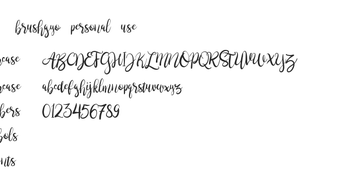 brushgyo personal use
case ABCDEFGHIJKLMNOPQRSTUVWXYZ
case abcdefghijklmnopqrstuvwxyz
bers 0123456789
bols
nts